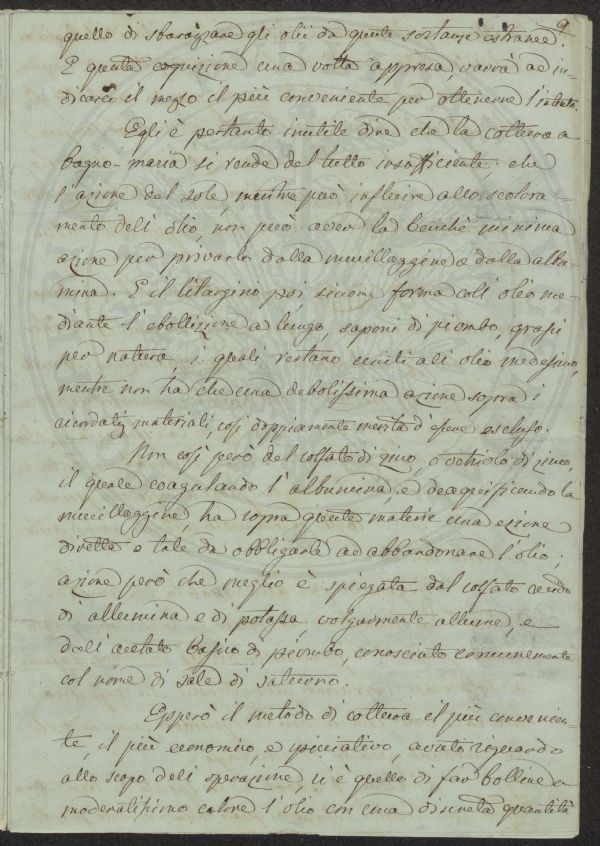 9
quello di sbarazzare gli olii da queste sostanze estranee.
E questa cognizione una volta appresa, varrà ad in-
dicarci il mezzo il più conveniente per ottenerne l'intento.
Egli è pertanto inutile dire che la cottura a
bagno-maria si rende del tutto insufficiente; che
l'azione del sole, mentre può influire allo scolora-
mento dell'olio, non può aver la benchè minima
azione per privarlo dalla mucillaggine e dalla albu-
mina. E il litargirio poi, siccome forma coll'olio me-
diante l'ebollizione a lungo, saponi di piombo, grassi
per natura, i quali restano uniti all'olio medesimo,
mentre non ha che una debolissima azione sopra i
ricordati materiali, così doppiamente merita d'essere escluso.
Non così però del solfato di zinco, o vetriolo di zinco,
il quale coagulando l'albumina, e deaquificando la
mucillaggine, ha sopra queste materie una azione
diretta e tale da obbligarle ad abbandonare l'olio;
azione però che meglio è spiegata dal solfato acido
di allumina e di potassa volgarmente allume, e
dall'acetato basico di piombo, conosciuto comunemente
col nome di sale di saturno.
Epperò il metodo di cottura il più convenien-
te, il più economico, e sbrigativo, avuto riguardo
allo scopo dell'operazione, si è quello di far bollire a
moderatissimo calore l'olio con una discreta quantità